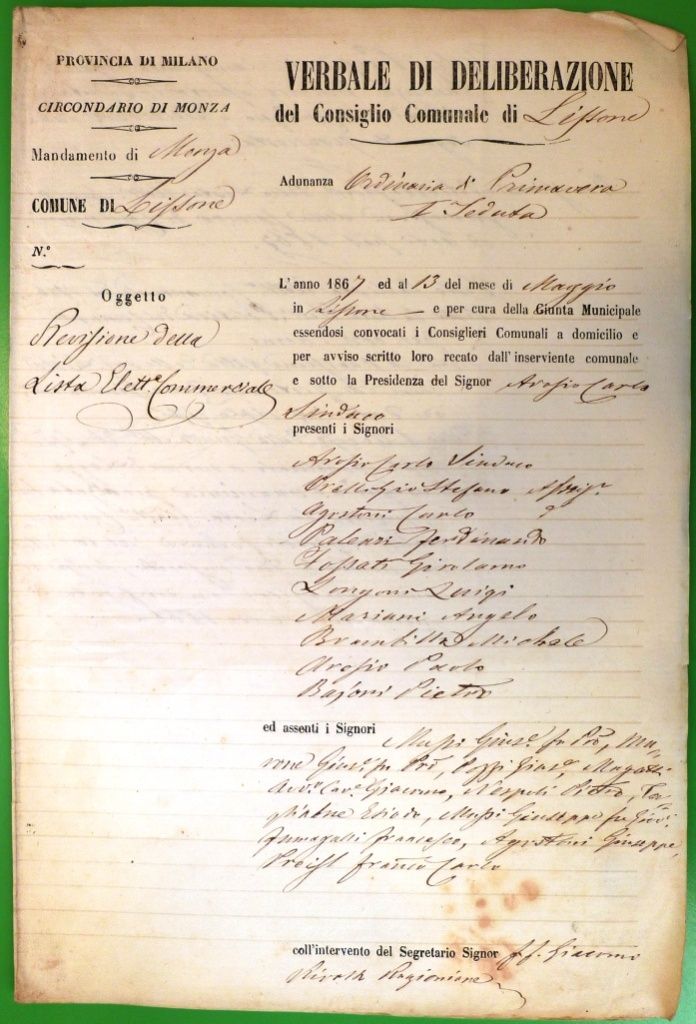 PROVINCIA DI MILANO
CIRCONDARIO DI MONZA
Mandamento di Monza
COMUNE DI Lissone
N.º
Oggetto
Revisione della
Lista Elett.e Commerciale
VERBALE DI DELIBERAZIONE
del Consiglio Comunale di Lissone
Adunanza Ordinaria di Primavera
I Seduta
L'anno 1867 ed al 13 del mese di Maggio
in Lissone e per cura della Giunta Municipale
essendosi convocati i Consiglieri Comunali a domicilio e
per avviso scritto loro recato dall'inserviente comunale
e sotto la Presidenza del Signor Arosio Carlo
Sindaco
presenti i Signori
Arosio Carlo Sindaco
Stefano
Agostoni Carlo
Paleari Ferdinando
Fossati Girolamo
Longoni Luigi
Mariani Angelo
Brambilla Michele
Arosio Paolo
Bajoni Pietro
ed assenti i Signori
Mussi Gius.e fu
Gius.e fu Pozzi Gius.e, Magatti
Giacomo, Nespoli Pietro,
Mussi Giuseppe fu
Fumagalli Francesco, Agostoni Giuseppe,
Carlo
coll'intervento del Segretario Signor ff. Giacomo
Rivolta Ragioniere